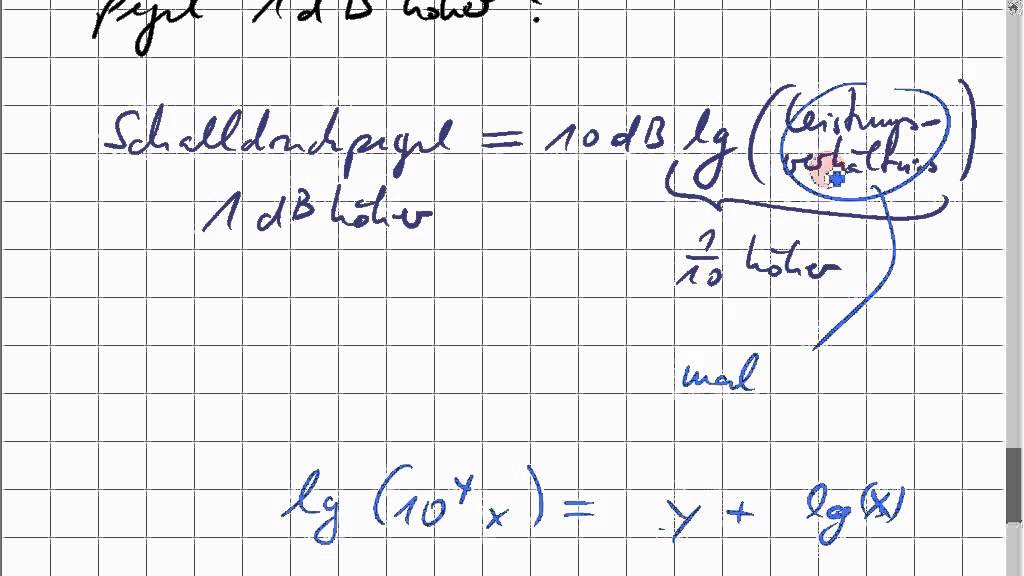 Pegel 1 dB höher?
Schalldruckpegel = 10 dB lg (Leistungs-
verhältnis)
1 dB höher
1/10 höher
mal
lg (10^y x) = y + lg(x)